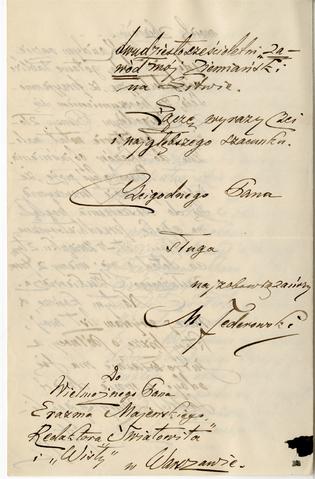 dwudziestosześcioletni za-
wód mój „Ziemiański"
na Litwie.
Łączę wyrazy czci
i najgłębszego szacunku.
Czcigodnego Pana
sługa
najzobowiązańszy
M. Federowski
Do
Wielmożnego Pana
Erazma Majewskiego,
Redaktora „Światowita"
i „Wisły"
w Warszawie.